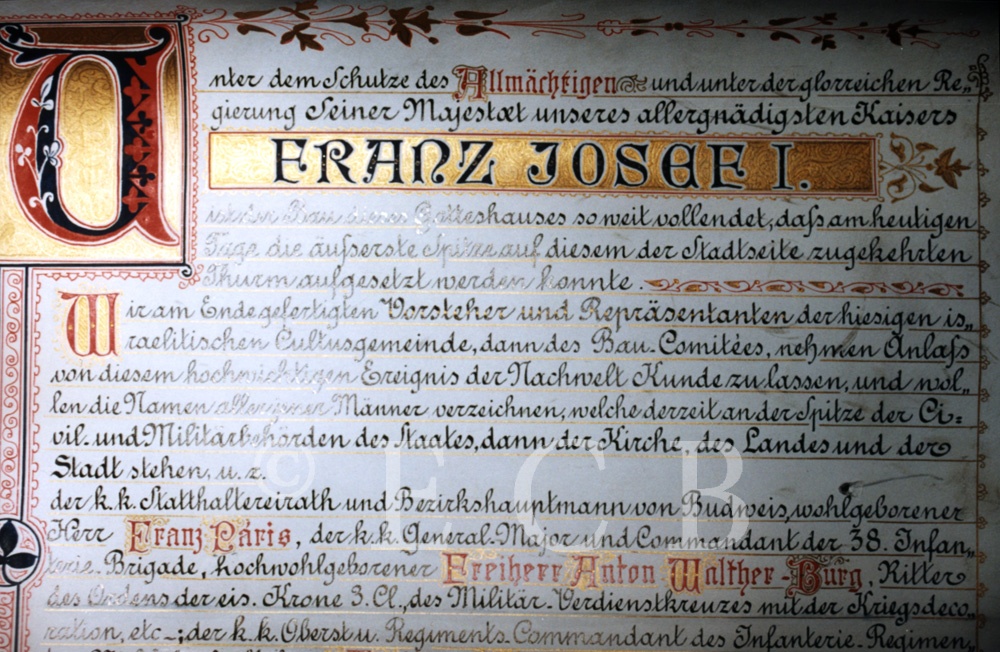 Unter dem Schutze des Allmächtigen und unter der glorreichen Re„
gierung Seiner Majestæt unseres allergnädigsten Kaisers
FRANZ JOSEF I.
Bau dieses Gotteshauses so weit vollendet, daſs am heutigen
Tage die äuſserste Spitze auf diesem der Stadtseite zugekehrten
Thurm aufgesetzt werden konnte.
Wir am Ende gefertigten Vorsteher und Repräsentanten der hiesigen is„
raelitischen Cultusgemeinde, dann des Bau-Comitées, nehmen Anlaſs
von diesem hochwichtigen Ereignis der Nachwelt Kunde zu lassen, und wol„
len die Namen aller jener Männer verzeichnen, welche derzeit an der Spitze der Ci„
vil- und Militärbehörden des Staates, dann der Kirche, des Landes und der
Stadt stehen, u. z.
der k.k. Statthaltereirath und Bezirkshauptmann von Budweis, wohlgeborener
Herr Franz Páris, der k.k. General-Major und Commandant der 38. Infan„
terie-Brigade, hochwohlgeborener Freiherr Anton Walther-Burg, Ritter
des Ordens der eis. Krone 3. Cl., des Militär-Verdienstkreuzes mit der Kriegsdeco„
ration, etc-; der k.k. Oberst u. Regiments-Commandant des Infanterie-Regimen„
© ECB